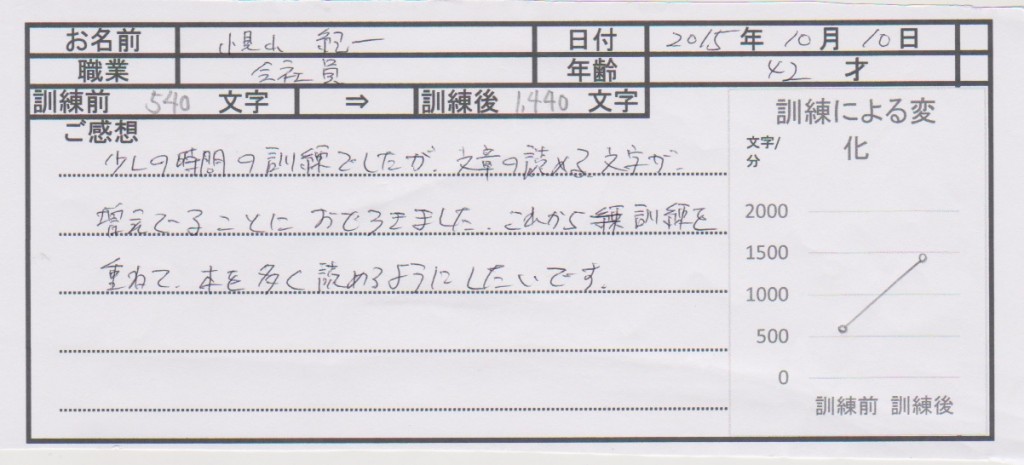 お名前 紀一 日付 2015年10月10日
職業 会社員 年齢 42才
訓練前 540 文字 ⇒ 訓練後 1,440 文字
ご感想
少しの時間の訓練でしたが、文章の読める文字が、
増えてることにおどろきました。これから練訓練を
重ねて、本を多く読めるようにしたいです。
訓練による変
化
文字/
分
2000
1500
1000
500
0
訓練前 訓練後